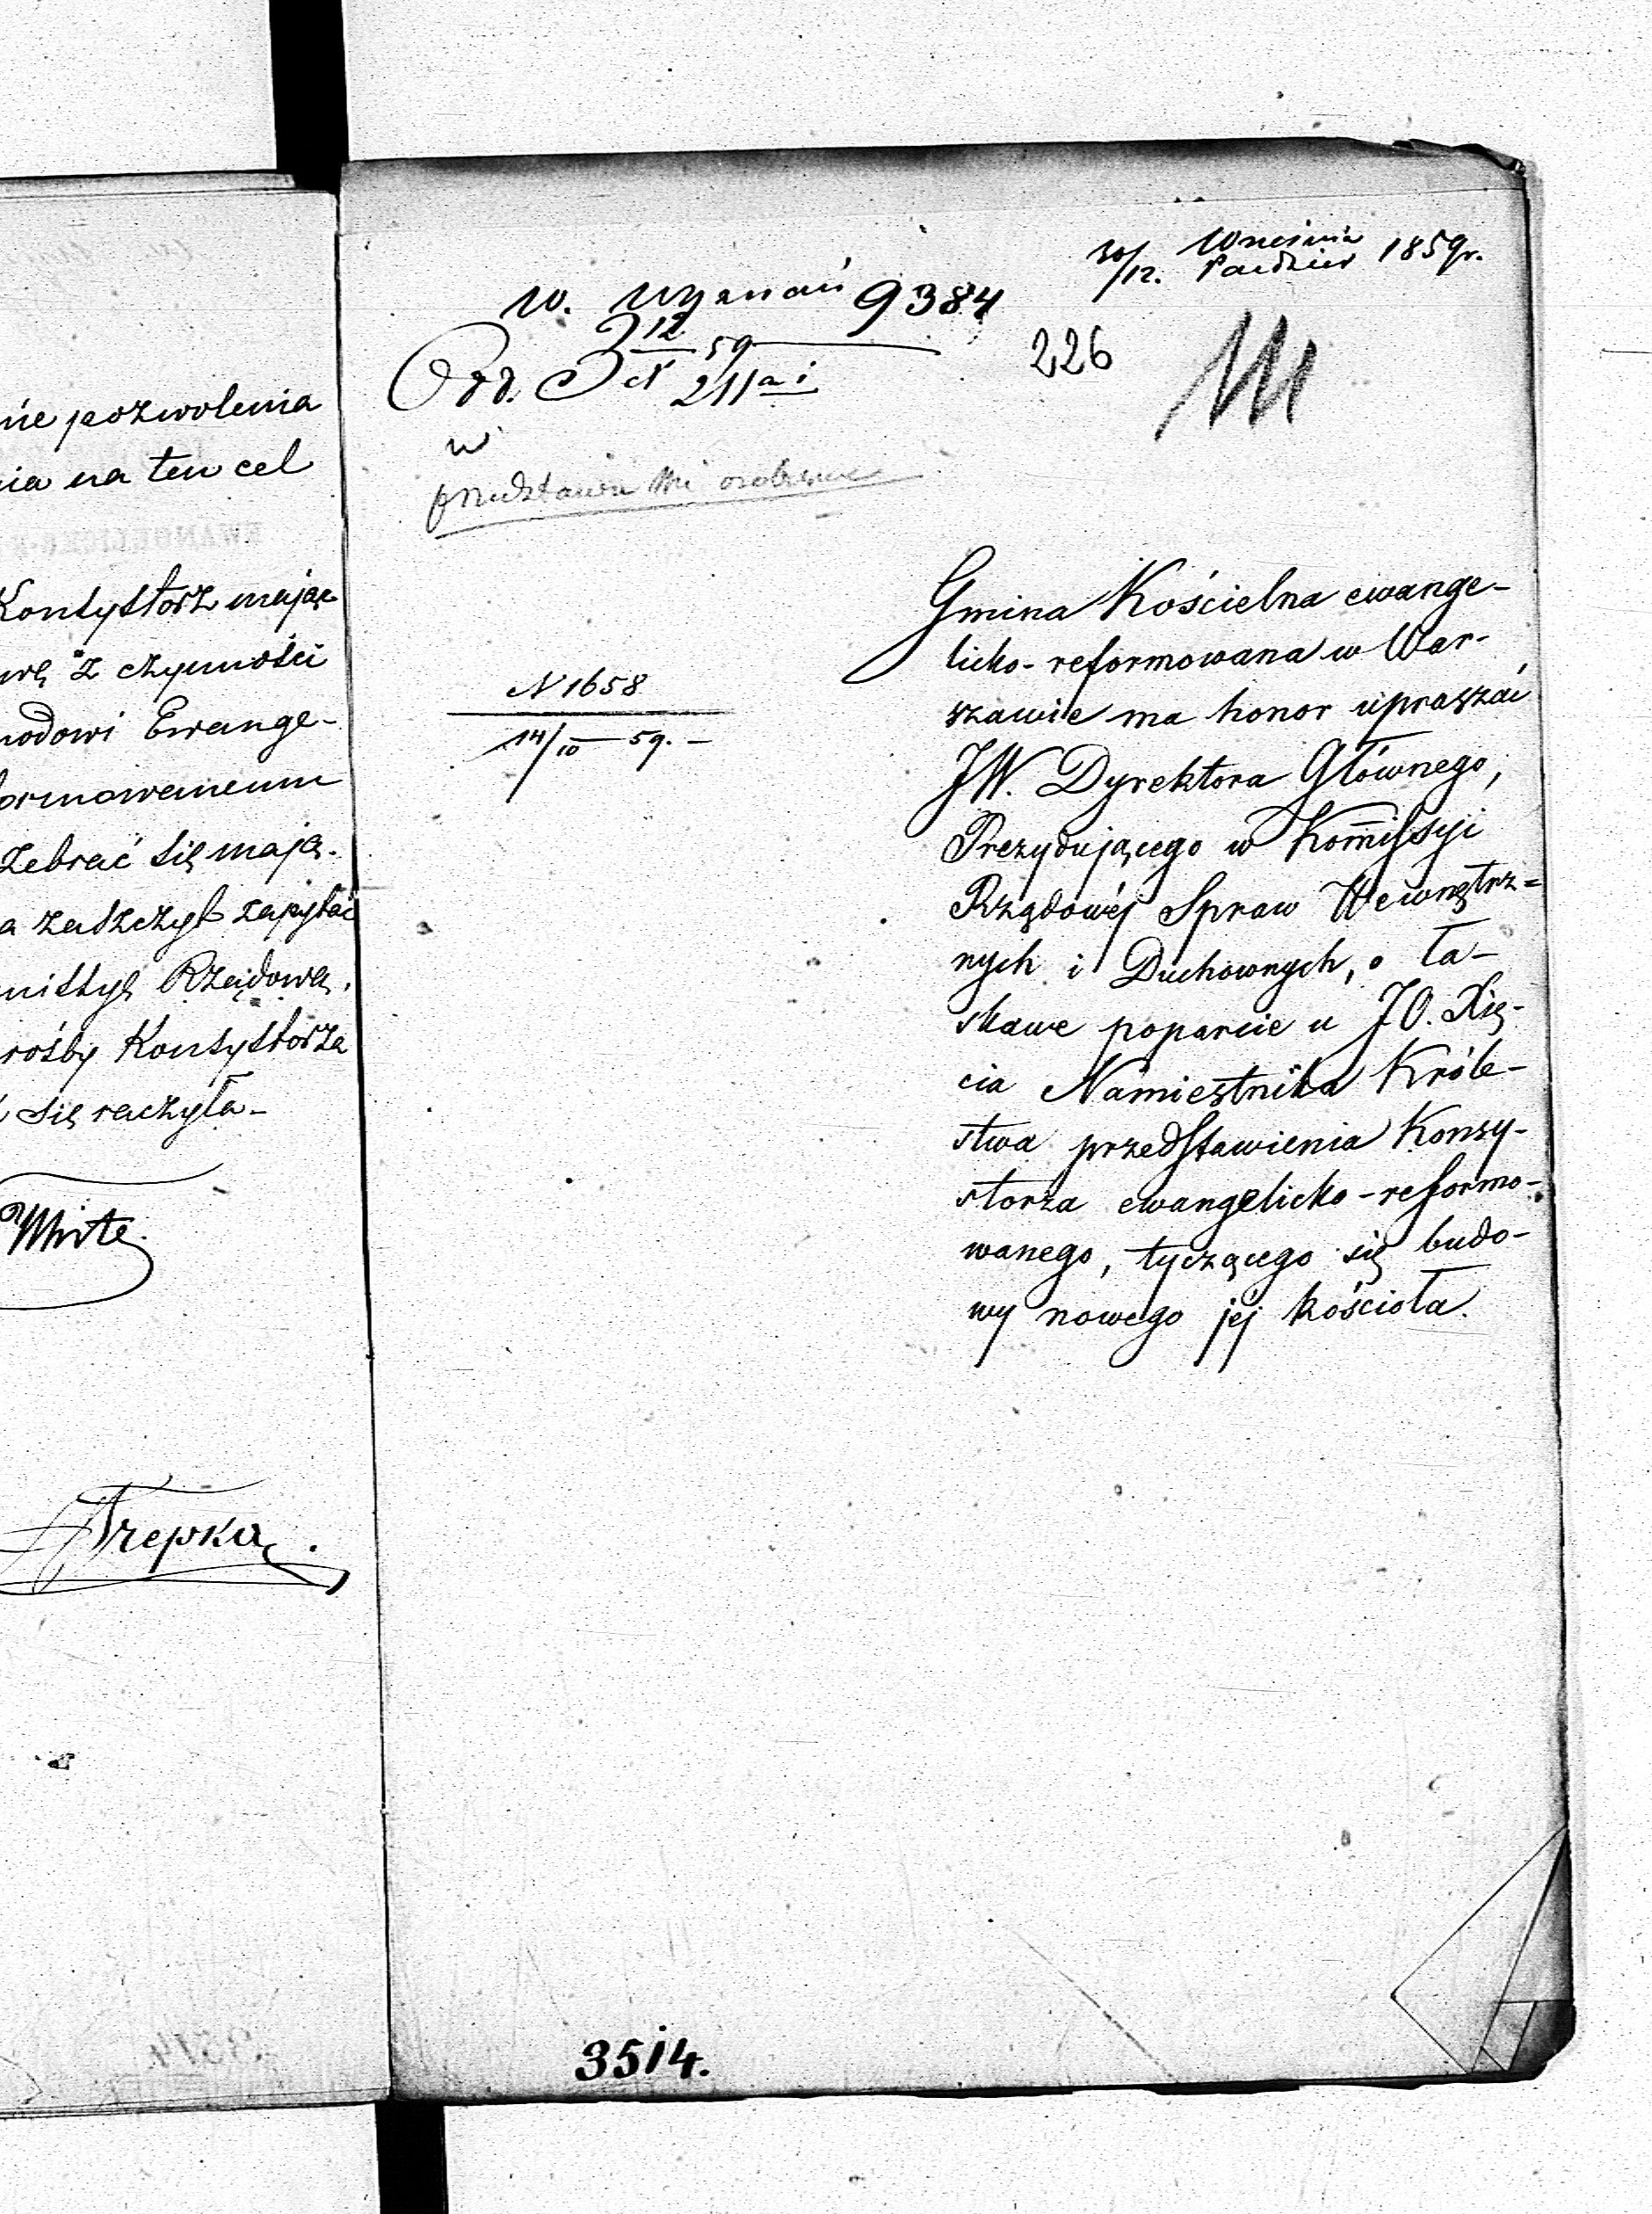 nie pozwolenia
nia na ten cel
Konsystorz mając
wę z czynności
nodowi Ewange-
formowanemu
zebrać się mają.
a zaszczyt zapytać
missyę Rządową,
rośby Konsystorza
się raczyła-
White.
Trepka.
30/12. Września Paździer 1859r.
W. Wyznań 9384
12 59
Odd. 211
226
w
przedstawić mi osobiście
N 1658
14/10 59.-
Gmina Kościelna ewange-
licko-reformowana w War-
szawie ma honor upraszać
JW. Dyrektora Głównego,
Prezydującego w Kommissyi
Rządowéj Spraw Wewnętrz=
nych i Duchownych, o ła-
skawe poparcie u JO. Xię-
cia Namiestnika Króle-
stwa przedstawienia Konsy-
storza ewangelicko-reformo-
wanego, tyczącego się budo-
wy nowego jéj kościoła.
3514.